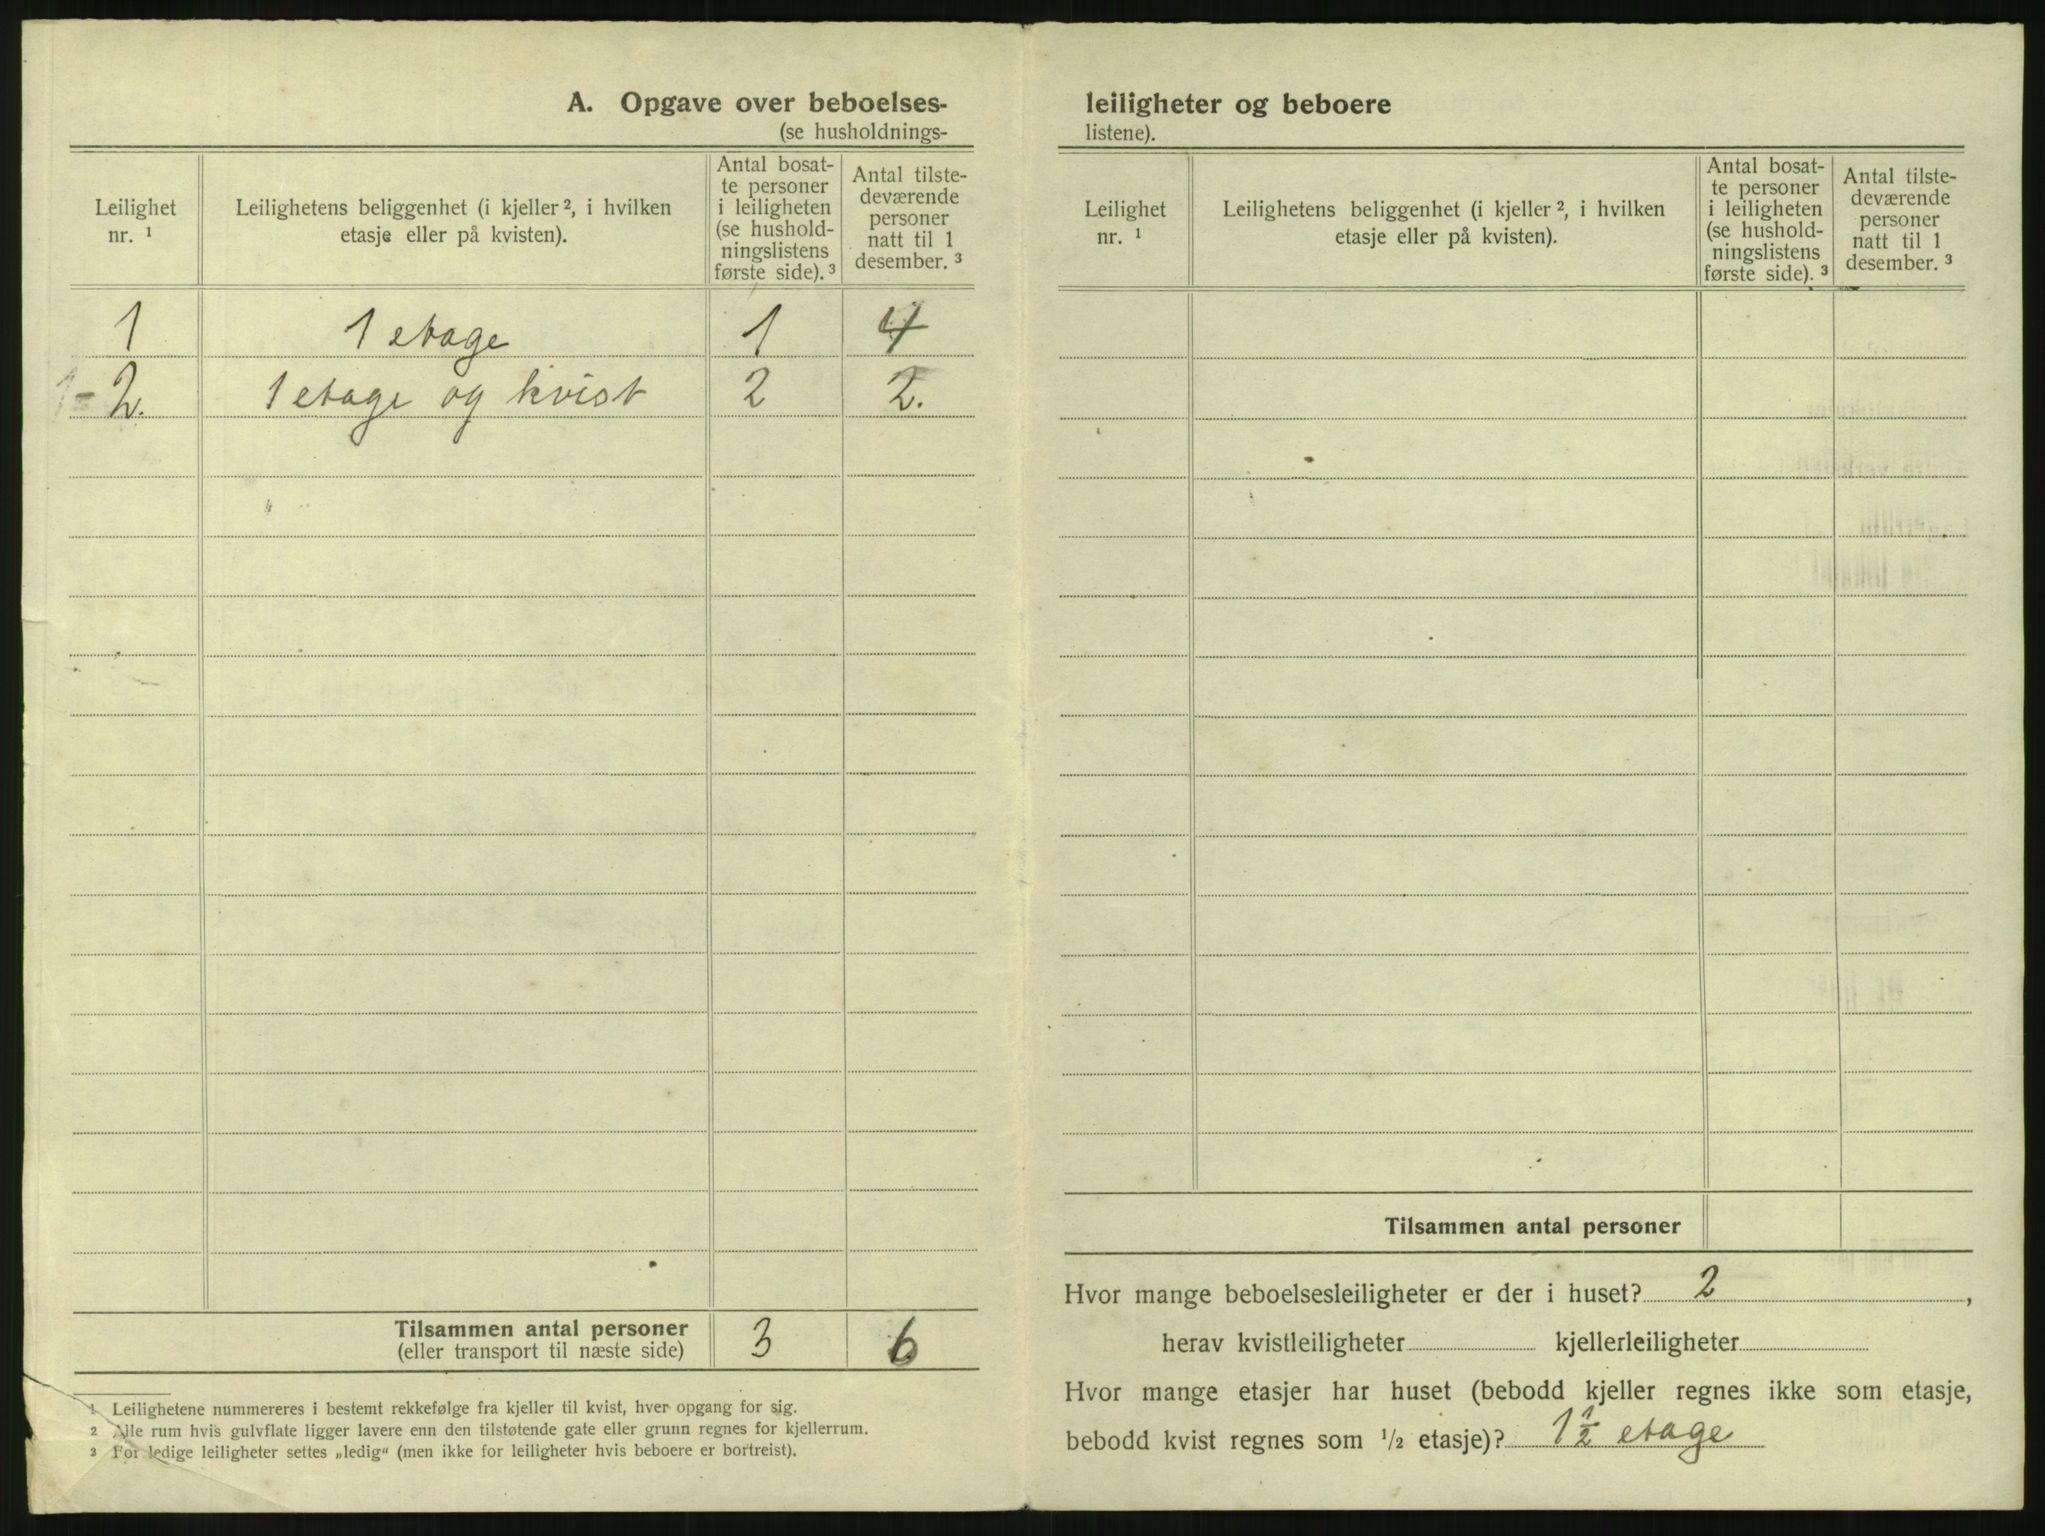 A. Opgave over beboelses-
(se husholdnings-
Leilighet nr. ¹
Leilighetens beliggenhet (i kjeller ², i hvilken etasje eller på kvisten).
Antal bosat-
te personer
i leiligheten
(se hushold-
ningslistens
første side). ³
Antal tilste-
deværende
personer
natt til 1
desember. ³
1 1 etage 1 4
1-2. 1 etage og kvist 2 2.
Tilsammen antal personer 3 6
(eller transport til næste side)
1 Leilighetene nummereres i bestemt rekkefølge fra kjeller til kvist, hver opgang for sig.
2 Alle rum hvis gulvflate ligger lavere enn den tilstøtende gate eller grunn regnes for kjellerrum.
3 For ledige leiligheter settes „ledig“ (men ikke for leiligheter hvis beboere er bortreist).
leiligheter og beboere
listene).
Leilighet nr. ¹
Leilighetens beliggenhet (i kjeller ², i hvilken etasje eller på kvisten).
Antal bosat-
te personer
i leiligheten
(se hushold-
ningslistens
første side). ³
Antal tilste-
deværende
personer
natt til 1
desember. ³
Tilsammen antal personer
Hvor mange beboelsesleiligheter er der i huset? 2,
herav kvistleiligheter kjellerleiligheter
Hvor mange etasjer har huset (bebodd kjeller regnes ikke som etasje,
bebodd kvist regnes som ½ etasje)? 1 ½ etage